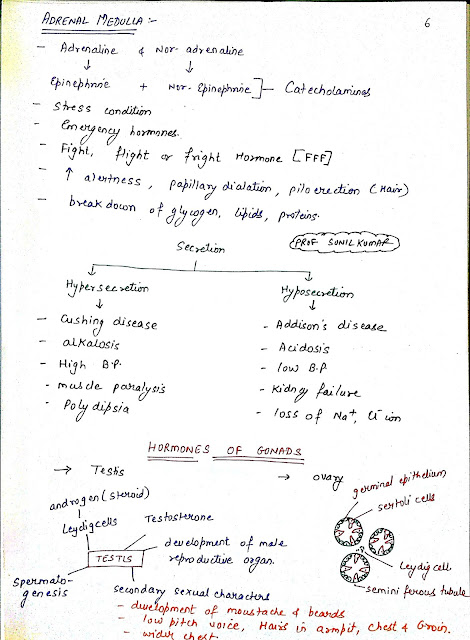 ADRENAL MEDULLA :-
6
- Adrenaline & Nor-adrenaline
↓ ↓
Epinephrine + Nor-Epinephrine ]- Catecholamines
- Stress condition
- Emergency hormones.
- Fight, flight or fright Hormone [FFF]
- ↑ alertness, papillary dialation, piloerection (Hair)
- breakdown of glycogen, lipids, proteins.
Secretion
PROF SUNIL KUMAR
Hypersecretion
Hyposecretion
- Cushing disease
- Addison's disease
- alkalosis
- Acidosis
- High B.P.
- low B.P
- muscle paralysis
- Kidney failure
- Polydipsia
- loss of Na+, Cl- ion
HORMONES OF GONADS
→ Testis
→ ovary
germinal epithelium
androgen (steroid)
sertoli cells
Leydig cells
Testosterone
development of male
reproductive organ.
TESTIS
Leydig cell
Spermato-
genesis
seminiferous tubule
secondary sexual characters
- development of moustache & beards
- low pitch voice, Hairs in armpit, chest & Groin.
- wider chest.